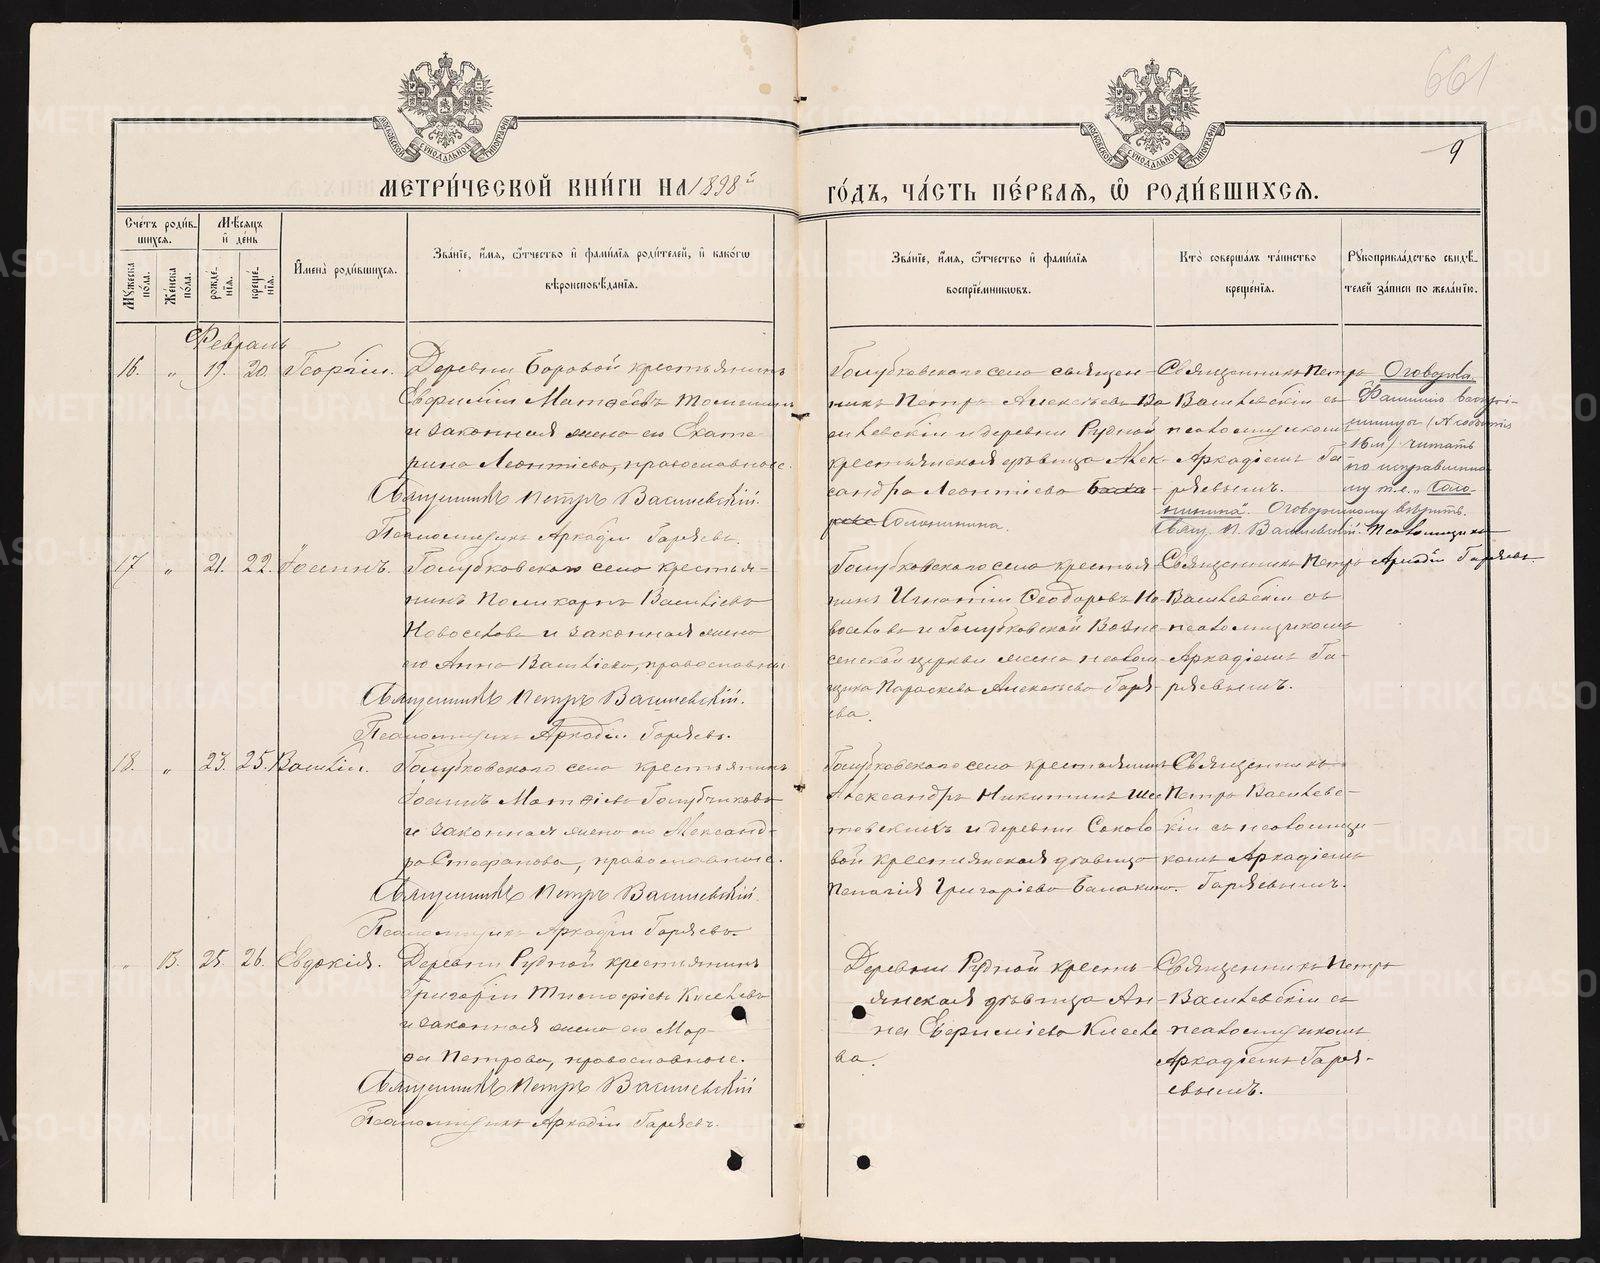 661
9
МОСКОВСКОЙ СѴНОДАЛЬНОЙ ТИПОГРАФІИ
МОСКОВСКОЙ СѴНОДАЛЬНОЙ ТИПОГРАФІИ
МЕТРИ́ЧЕСКОЙ КНИ́ГИ НА 1898й
ГО́ДЪ, ЧА́СТЬ ПЕ́РВАЯ, Ѽ РОДИ́ВШИХСЯ.
Сче́тъ роди́в-
шихся.
Мѣ́сяцъ
и҆ де́нь
Мꙋ́жеска по́ла.
Же́нска по́ла.
рожде́-нїя.
креще́-нїя.
И҆мена̀ роди́вшихся.
Зва́нїе, и҆́мя, ѻ҆́тчество и҆ фами́лїя роди́телей, и҆ како́гѡ
вѣроисповѣ́данїя.
Зва́нїе, и҆́мя, ѻ҆́тчество и҆ фами́лїя
воспрїе́мниковъ.
Кто̀ соверша́лъ та́инство
креще́нїя.
Рꙋкоприкла́дство свидѣ́-
телей за́писи по жела́нїю.
Февраль
16. „ 19. 20. Георгій. Деревни Боровой крестьянинъ
Евфимій Матѳеевъ
и законная жена его Екате-
рина Леонтіева, православные.
Священникъ Петръ Василевскій.
Псаломщикъ Аркадій Гаряевъ.
Голубковскаго села священ-
никъ Петръ Алексѣевъ Ва-
силевскій и деревни Рудной
крестьянская дѣвица Алек-
сандра Леонтіева
Голошинина.
Священникъ Петръ
Василевскій съ
псаломщикомъ
Аркадіемъ Га-
ряевымъ.
Оговорка.
Фамилію воспрі-
емницы (№ событія
16 м) читать
по исправленно-
му т.е. „Голо-
шинина“. Оговоренному вѣрить.
Свящ. П. Василевскій. Псаломщикъ
Аркадій Гаряевъ.
17 „ 21. 22. Іоаннъ. Голубковскаго села крестья-
нинъ Поликарпъ Василіевъ
Новоселовъ и законная жена
его Анна Василіева, православные
Священникъ Петръ Василевскій.
Псаломщикъ Аркадій Гаряевъ.
Голубковскаго села крестья-
нинъ Игнатій Ѳеодоровъ Но-
воселовъ и Голубковской Возне-
сенской церкви жена псалом-
щика Параскева Алексѣева Гаря-
ева.
Священникъ Петръ
Василевскій съ
псаломщикомъ
Аркадіемъ Га-
ряевымъ.
18. „ 23. 25. Василій. Голубковскаго села крестьянинъ
Іоаннъ Матѳіевъ Голубчиковъ
и законная жена его Александ-
ра Стефанова, православные.
Священникъ Петръ Василевскій.
Псаломщикъ Аркадій Гаряевъ.
Голубковскаго села крестьянинъ
Александръ Никитинъ Ше-
и деревни Соколо-
вой крестьянская дѣвица
Пелагія Григоріева Балакина.
Священникъ
Петръ Василевс-
кій съ псаломщи-
комъ Аркадіемъ
Гаряевымъ.
„ 15. 25. 26. Евдокія. Деревни Рудной крестьянинъ
Григорій Тимоѳіевъ Киселевъ
и законная жена его Мар-
ѳа Петрова, православные.
Священникъ Петръ Василевскій
Псаломщикъ Аркадій Гаряевъ.
Деревни Рудной кресть-
янская дѣвица Ан-
на Евфиміева Киселе-
ва.
Священникъ Петръ
Василевскій съ
псаломщикомъ
Аркадіемъ Гаря-
евымъ.